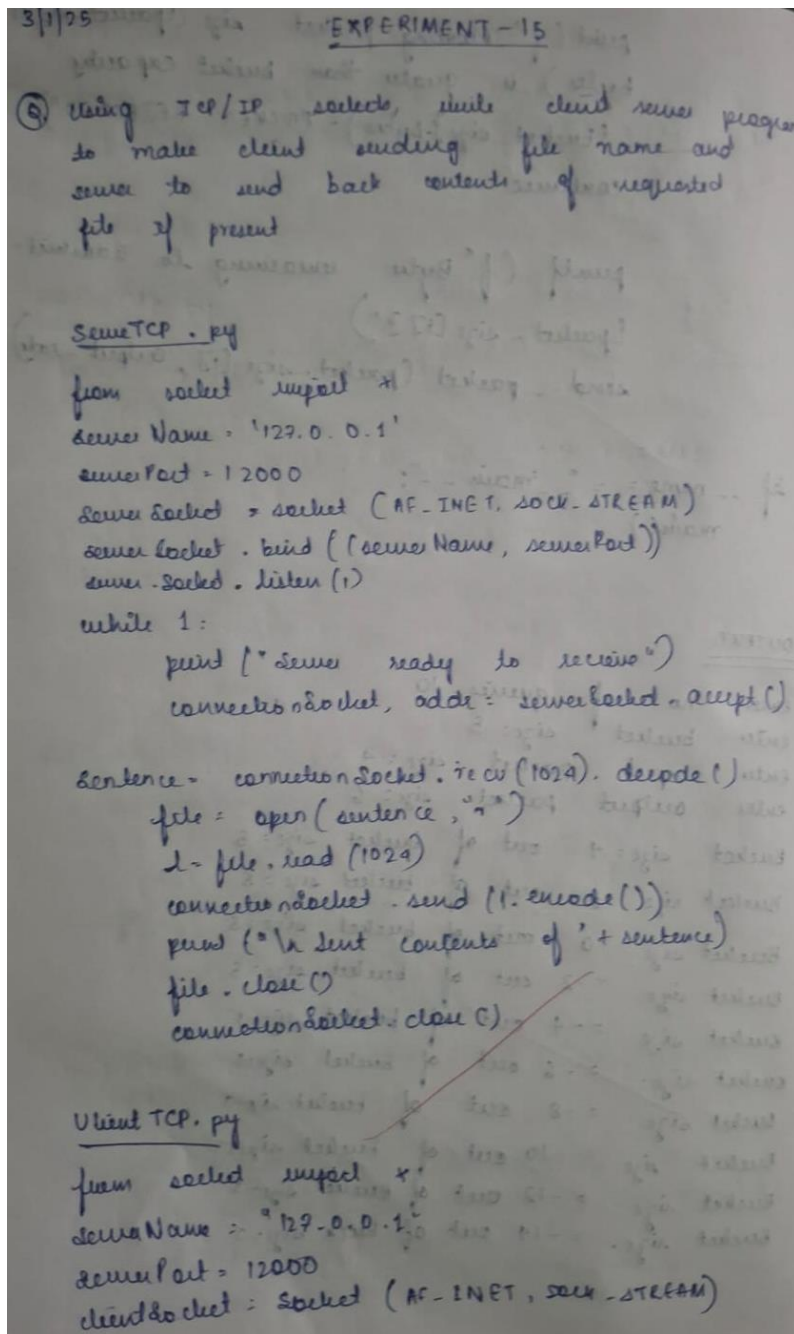 3/1/25
EXPERIMENT-15
Q. Using TCP/IP sockets, write client server program
to make client sending file name and
server to send back contents of requested
file if present
ServerTCP.py
from socket import *
serverName = '127.0.0.1'
serverPort = 12000
serverSocket = socket (AF_INET, SOCK_STREAM)
serverSocket.bind ((serverName, serverPort))
server.Socket.listen (1)
while 1:
print ("Server ready to receive")
connectionSocket, addr = serverSocket.accept ()
Sentence = connectionSocket.recv (1024).decode ()
file = open (sentence, "r")
l = file.read (1024)
connectionSocket.send (l.encode ())
print ("\n Sent contents of '+ sentence)
file.close ()
connectionSocket.close ()
Client TCP.py
from socket import *
serverName = "127.0.0.1"
serverPort = 12000
clientSocket = Socket (AF_INET, SOCK_STREAM)